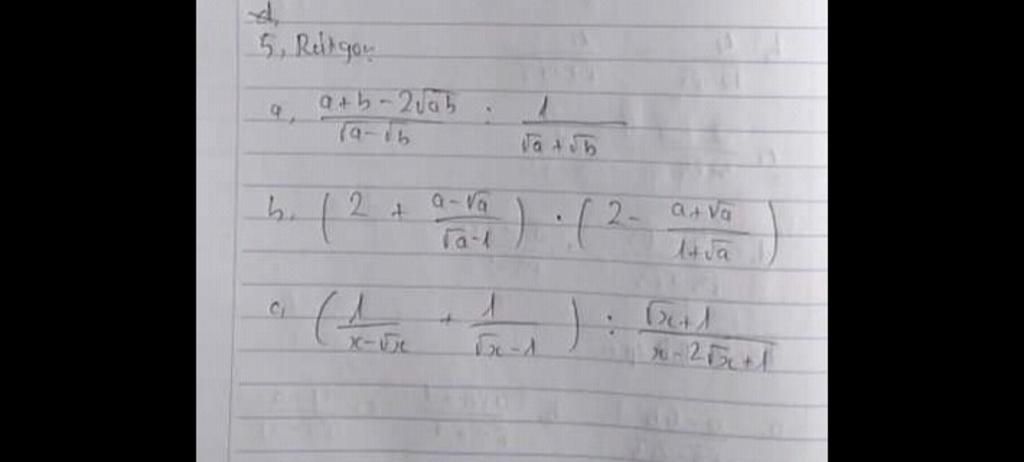 d,
5, Rút gọn
a, \frac{a+b-2\sqrt{ab}}{\sqrt{a}-\sqrt{b}} : \frac{1}{\sqrt{a}+\sqrt{b}}
b, ( 2 + \frac{a-\sqrt{a}}{\sqrt{a}-1} ) . ( 2 - \frac{a+\sqrt{a}}{1+\sqrt{a}} )
c, ( \frac{1}{x-\sqrt{x}} + \frac{1}{\sqrt{x}-1} ) : \frac{\sqrt{x}+1}{x-2\sqrt{x}+1}